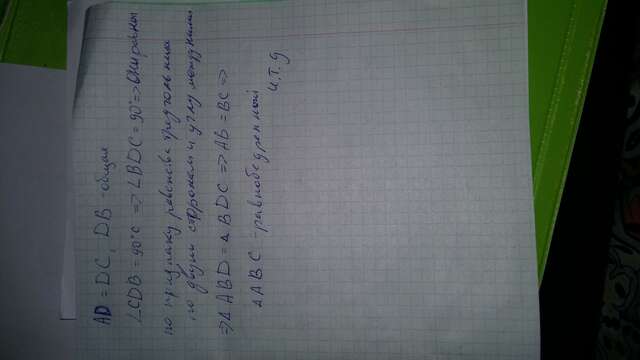 AD = DC, DB - общая
∠CDB = 90°C => ∠BDC = 90° => Они равны
по признаку равенства треугольника
по двум сторонам и углу между ними
=> △ABD = △BDC => AB = BC =>
△ABC - равнобедренный
ч.т.д